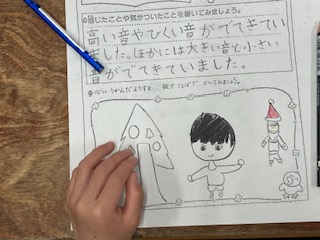 ◎感じたことや気がついたことを書いてみましょう。
高い音やひくい音がでてきてい
ました。ほかには大きい音と小さい
音がでてきていました。
絵や ことばで かいてみましょう。